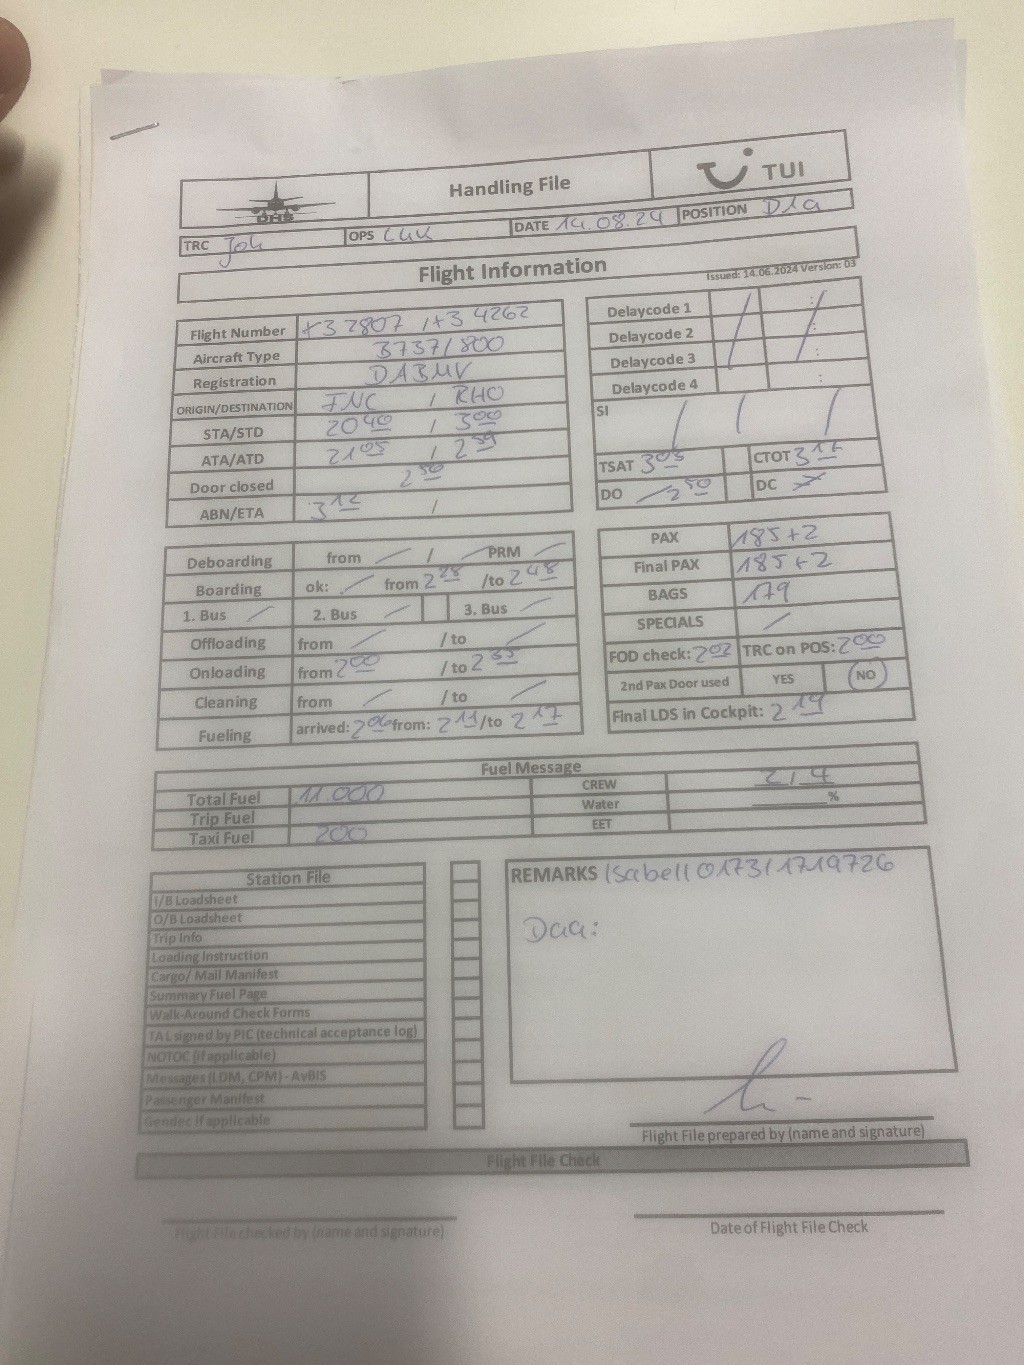 DHS Handling File TUI
TRC Joh OPS Luk DATE 14.08.24 POSITION D1a
Flight Information
Issued: 14.06.2024 Version: 03
Flight Number X3 2807 / X3 4262
Aircraft Type B737/800
Registration DABMV
ORIGIN/DESTINATION / RHO
STA/STD 20 40 / 3 00
ATA/ATD 21 05 / 2 59
Door closed 2 50
ABN/ETA 3 12 /
Delaycode 1 / : /
Delaycode 2 :
Delaycode 3 :
Delaycode 4 :
SI / / /
TSAT 3 05 CTOT
DO 2 50 DC
Deboarding from / / / PRM /
Boarding ok: / from 2 28 /to 2 48
1. Bus / 2. Bus / 3. Bus /
Offloading from / / to /
Onloading from 2 00 / to 2 35
Cleaning from / / to /
Fueling arrived: 2 06 from: 2 11 /to 2 17
PAX 185+2
Final PAX 185+2
BAGS 179
SPECIALS /
FOD check: 2 02 TRC on POS: 2 00
2nd Pax Door used YES NO
Final LDS in Cockpit: 2 19
Fuel Message
Total Fuel 11.000 CREW 2/4
Trip Fuel Water %
Taxi Fuel 200 EET
Station File
I/B Loadsheet
O/B Loadsheet
Trip Info
Loading Instruction
Cargo/ Mail Manifest
Summary Fuel Page
Walk-Around Check Forms
TAL signed by PIC (technical acceptance log)
NOTOC (if applicable)
Messages (LDM, CPM) - AvBIS
Passenger Manifest
Gendec if applicable
REMARKS Isabell 0173/1719726
Daa:
Flight File prepared by (name and signature)
Flight File Check
Flight File checked by (name and signature)
Date of Flight File Check